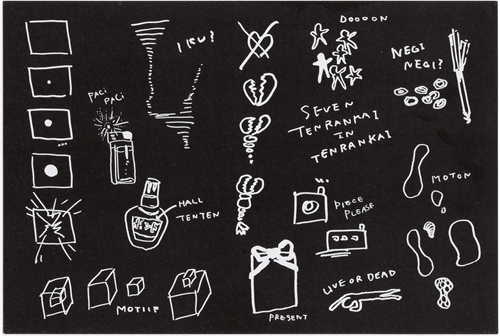 DOOOON
NEGI
NEGI?
PACI
PACI
SEVEN
TENRANKAI
IN
TENRANKAI
MOTON
HALL
TENTEN
PIECE
PLEASE
LIVE OR DEAD
MOTIIF
PRESENT